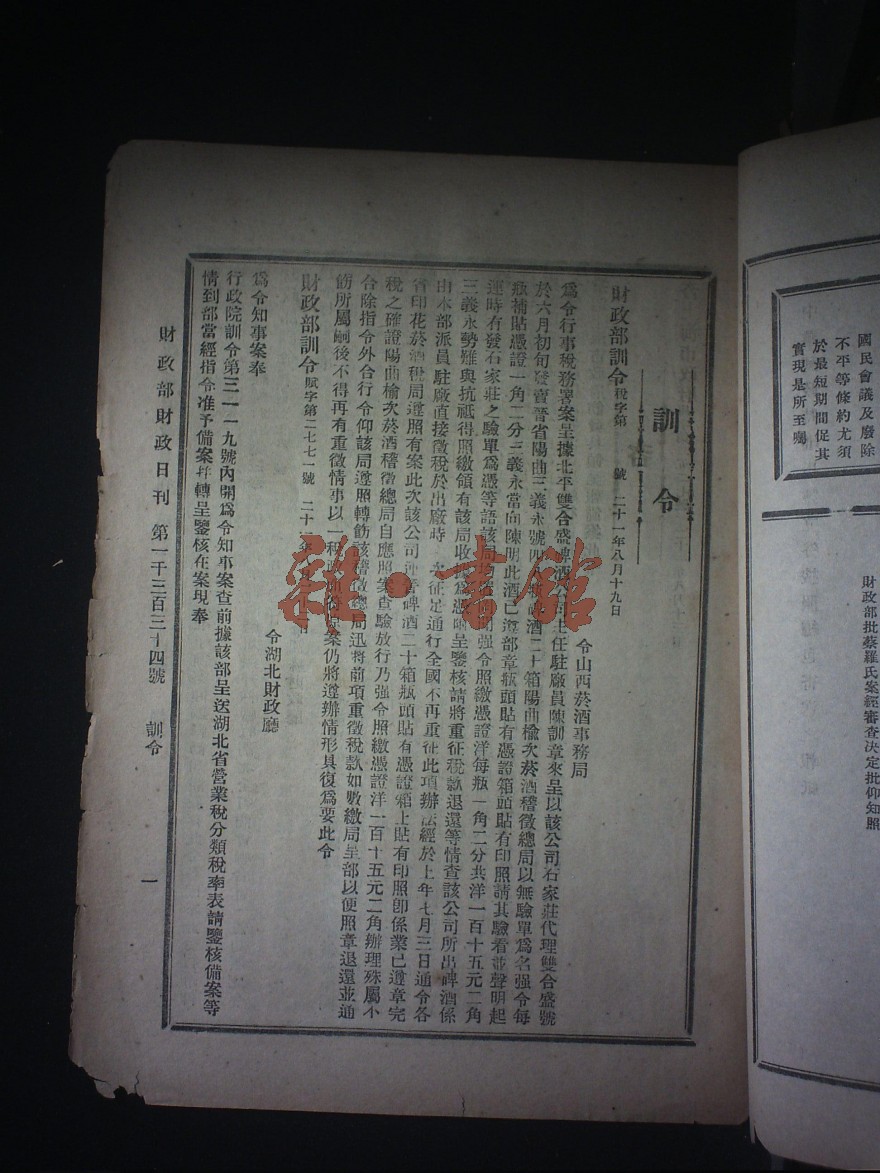 國民會議及廢除
不平等條約尤須
於最短期間促其
實現是所至囑
財政部批蔡羅氏案經審查決定批仰知照
訓令
財政部訓令稅字第 號 二十一年八月十九日
令山西菸酒事務局
爲令行事稅務署案呈據北平雙合盛啤酒公司主任駐廠員陳訓章來呈以該公司石家莊代理雙合盛號
於六月初旬發賣晉省陽曲三義永號啤酒二十箱陽曲榆次菸酒稽徵總局以無驗單爲名强令每
瓶補貼憑證一角二分三義永當向陳明此酒已遵部章瓶頭貼有憑證箱頭貼有印照請其驗看並聲明起
運時有發石家莊之驗單爲憑等語該局强令照繳憑證洋每瓶一角二分共洋一百十五元二角
三義永勢難與抗祗得照繳領有該局收據爲憑呈鑒核請將重征稅款退還等情查該公司所出啤酒係
由本部派員駐廠直接徵稅於出廠時一次征足通行全國不再重征此項辦法經於上年七月三日通令各
省印花菸酒稅局遵照有案此次該公司運晉啤酒二十箱瓶頭貼有憑證箱上貼有印照卽係業已遵章完
稅之確證陽曲榆次菸酒稽徵總局自應照案查驗放行乃强令照繳憑證洋一百十五元二角辦理殊屬不
合除指令外合行令仰該局遵照轉飭該稽徵總局迅將前項重徵稅款如數繳局呈部以便照章退還並通
飭所屬嗣後不得再有重徵情事以一稅政而符定案仍將遵辦情形具復爲要此令
財政部訓令賦字第二七七一號 二十年日
令湖北財政廳
爲令知事案奉
行政院訓令第三一一九號內開爲令知事案查前據該部呈送湖北省營業稅分類稅率表請鑒核備案等
情到部當經指令准予備案幷轉呈鑒核在案現奉
財政部財政日刊 第一千三百三十四號 訓令 一
雜·書館